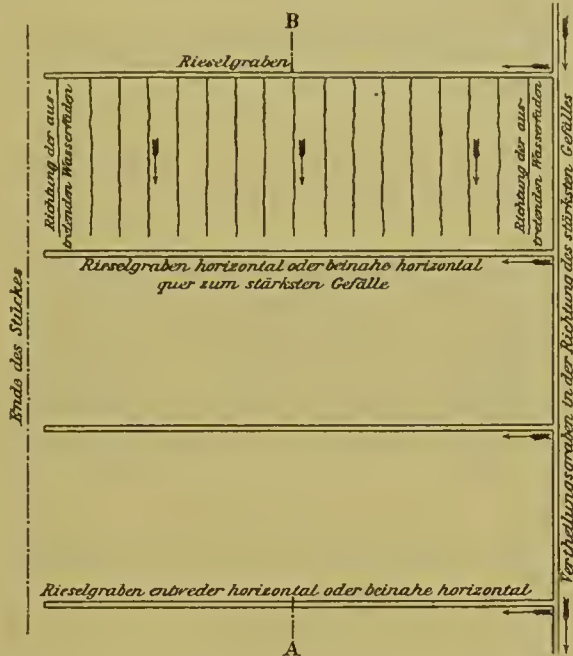 B
Rieselgraben
Richtung der aus-
tretenden Wasserfäden
Richtung der aus-
tretenden Wasserfäden
Rieselgraben horizontal oder beinahe horizontal
quer zum stärksten Gefälle
Ende des Stückes
Vertheilungsgraben in der Richtung des stärksten Gefälles
Rieselgraben entweder horizontal oder beinahe horizontal
A